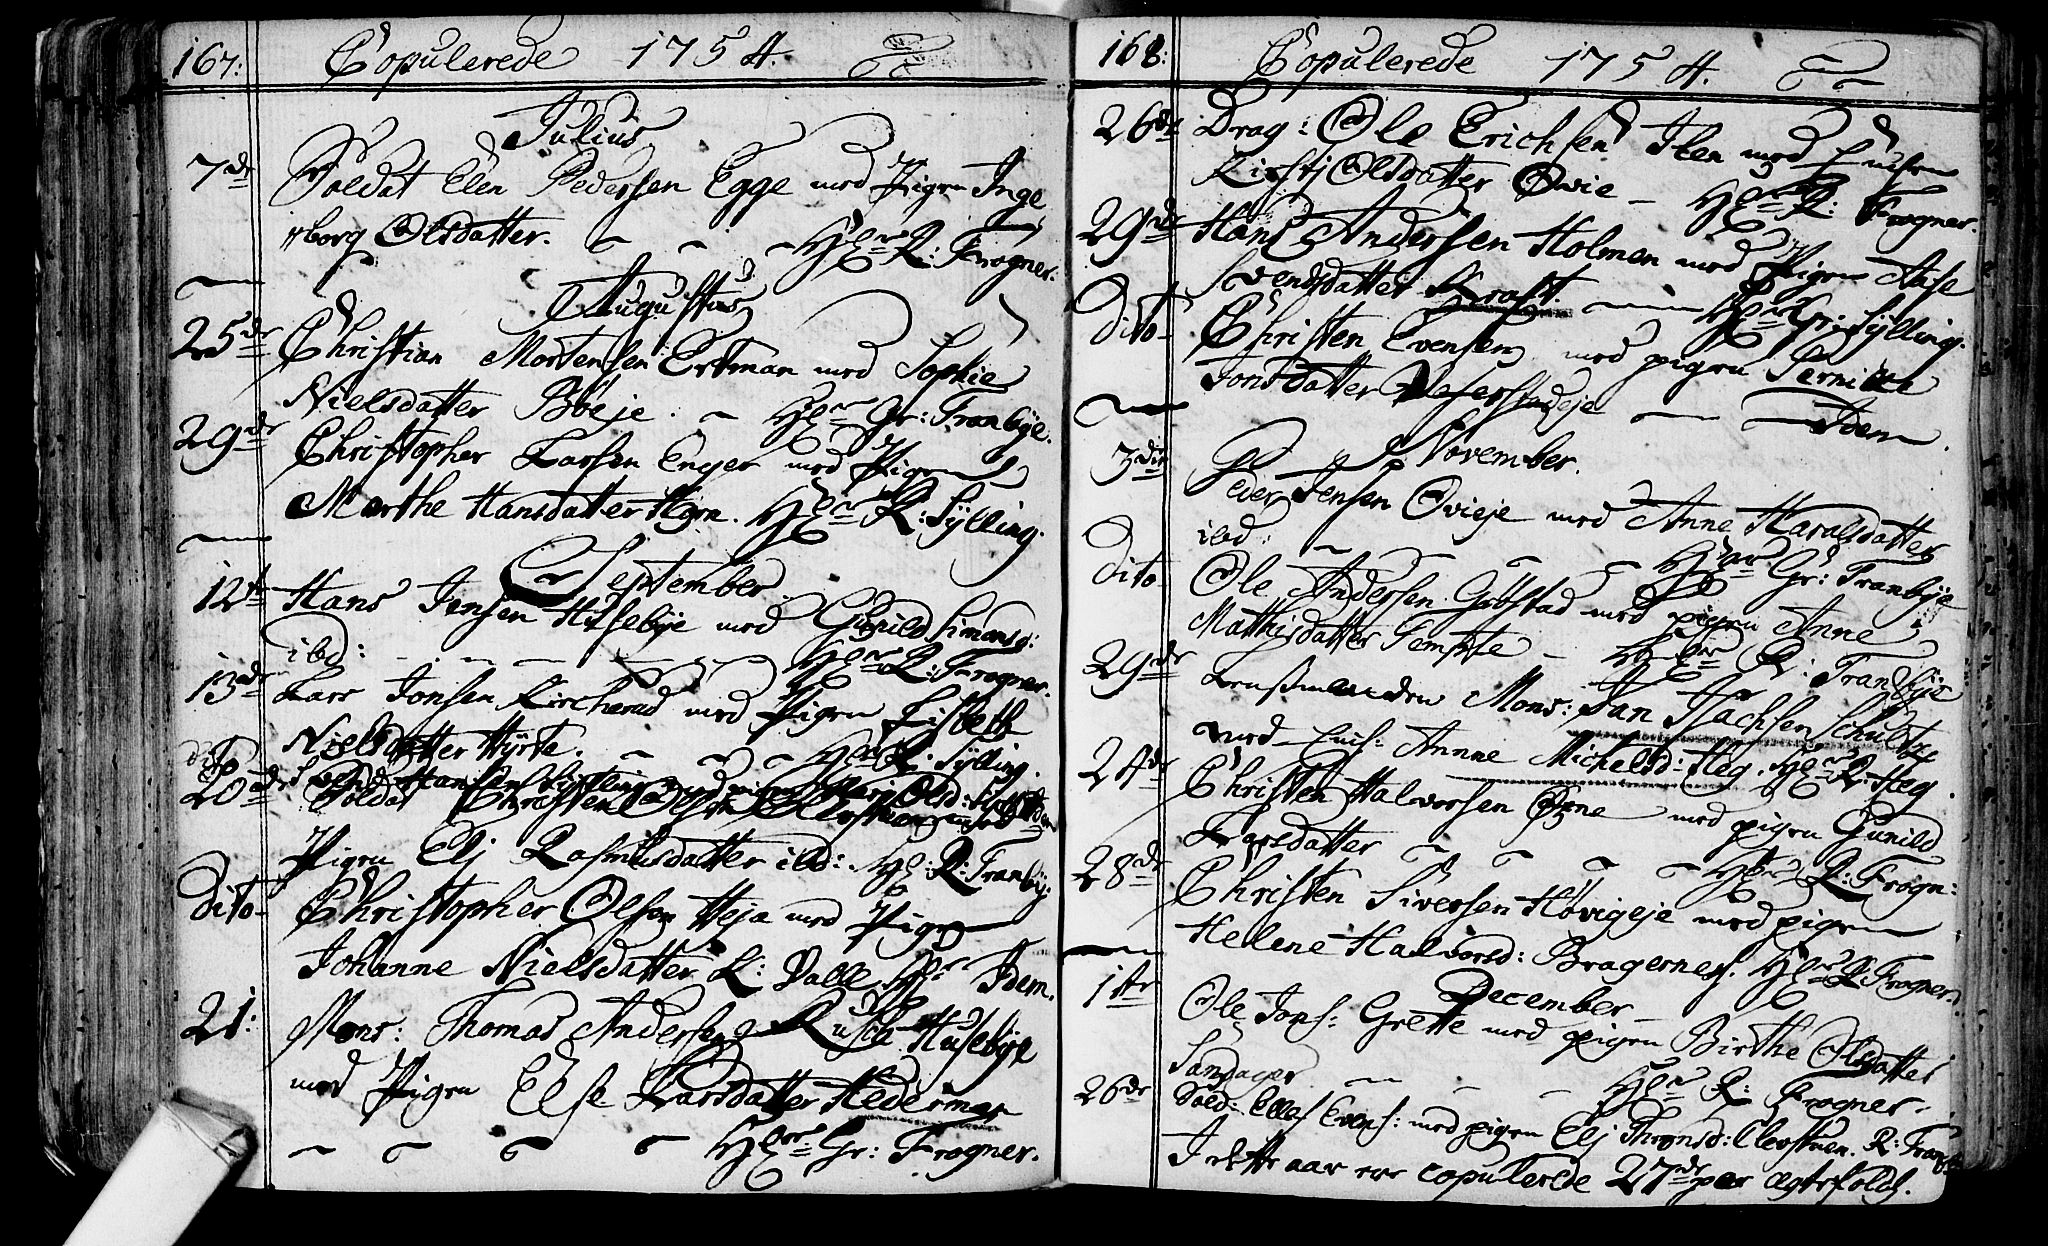 167: Copulerede 1754.
Julius
7de Soldat Elen Pedersen Egge med Pigen Inge
borg Olsdatter. Hl. R: Frogner.
Augustus
25de Christian Mortensen Ertman med Sophie
Nielsdatter Böeje. Hl. Gr: Tranbÿe.
29de Christopher Larsen Enger med Pigen
Marthe Hansdatter Horn. Hl. R: Sÿlling.
September
12te Hans Jensen Husebÿe med Gunild Simonsd:
ibd: Hl. R: Frogner.
13de Lars Jonsen Kircherud med Pigen Lisbeth
Nielsdatter Hÿrte. Hl. R: Sÿlling.
dito Svend Hansen Sÿlling med pigen Mari Olsd:
20de Soldat Christen Olsen med
Pigen Elj Rasmusdatter ibd: Hl: R: Tranbÿ:
dito Christopher Olsen Heja med Pigen
Johanne Nielsdatter L: Valle Hl. Idem.
21: Mons: Thomas Andersen Rusca Husebÿe
med Pigen Else Larsdatter Hedermar
Hl. Gr: Frogner.
168: Copulerede 1754.
26de Drag: Ole Erichsen Iten med Enchen
Kirstj Olsdatter Ovie Hl. R: Frogner.
29de Hans Andersen Holmen med Pigen Aase
Svendsdatter Kraft. Hl. Gr: Sÿlling.
dito Christen Evensen med pigen Pernille
Jonsdatter Idem.
November.
3die Peder Jensen Ovieje med Anne Haralsdatter
ibd: Hl. Gr: Tranbÿe
dito Ole Andersen Gobstad med pigen Anne
Mathisdatter Tempte Hl. R: Tranbÿe
29de Mons: Jan Jachsen Schultze
med Anne Michelsd: Heg. Hl. R: Heg.
24de Christen Halvorsen med pigen Gunild
Larsdatter Hl. R: Frogn:
28de Christen Siversen Hövigeje med pigen
Helene Halvorsd: Bragernes. Hl. R: Frogner.
December
1te Ole Jons: Grette med pigen Birthe Olsdatter
Sandager Hl. R: Frogner.
26de Sold: Ellef Evens: med pigen Elj Thronsd: Clevstuen. R: Tranb
I dette aar ere copulerede 27de par Ægtefolch.